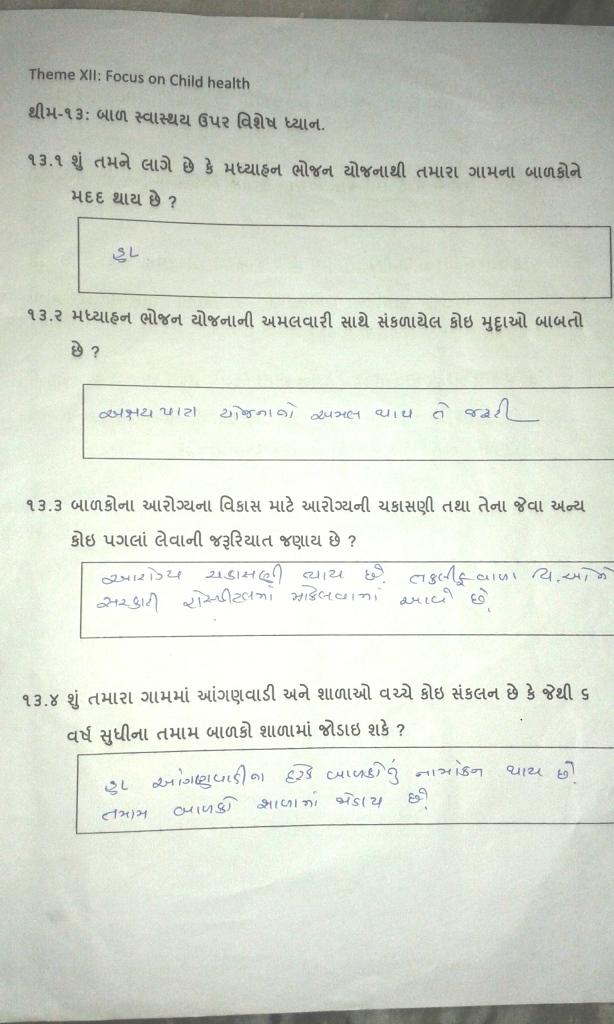 Theme XII: Focus on Child health
થીમ-૧૩: બાળ સ્વાસ્થય ઉપર વિશેષ ધ્યાન.
૧૩.૧ શું તમને લાગે છે કે મધ્યાહન ભોજન યોજનાથી તમારા ગામના બાળકોને
મદદ થાય છે ?
હા
૧૩.૨ મધ્યાહન ભોજન યોજનાની અમલવારી સાથે સંકળાયેલ કોઇ મુદ્દાઓ બાબતો
છે ?
અક્ષય પાત્રા યોજનાનો અમલ થાય તે જરૂરી
૧૩.૩ બાળકોના આરોગ્યના વિકાસ માટે આરોગ્યની ચકાસણી તથા તેના જેવા અન્ય
કોઇ પગલાં લેવાની જરૂરિયાત જણાય છે ?
આરોગ્ય ચકાસણી થાય છે. તકલીફવાળા વિ.ઓને
સરકારી હોસ્પીટલમાં મોકલવામાં આવે છે.
૧૩.૪ શું તમારા ગામમાં આંગણવાડી અને શાળાઓ વચ્ચે કોઇ સંકલન છે કે જેથી ૬
વર્ષ સુધીના તમામ બાળકો શાળામાં જોડાઇ શકે ?
હા આંગણવાડીના દરેક બાળકોનું નામાંકન થાય છે.
તમામ બાળકો શાળામાં જોડાય છે.